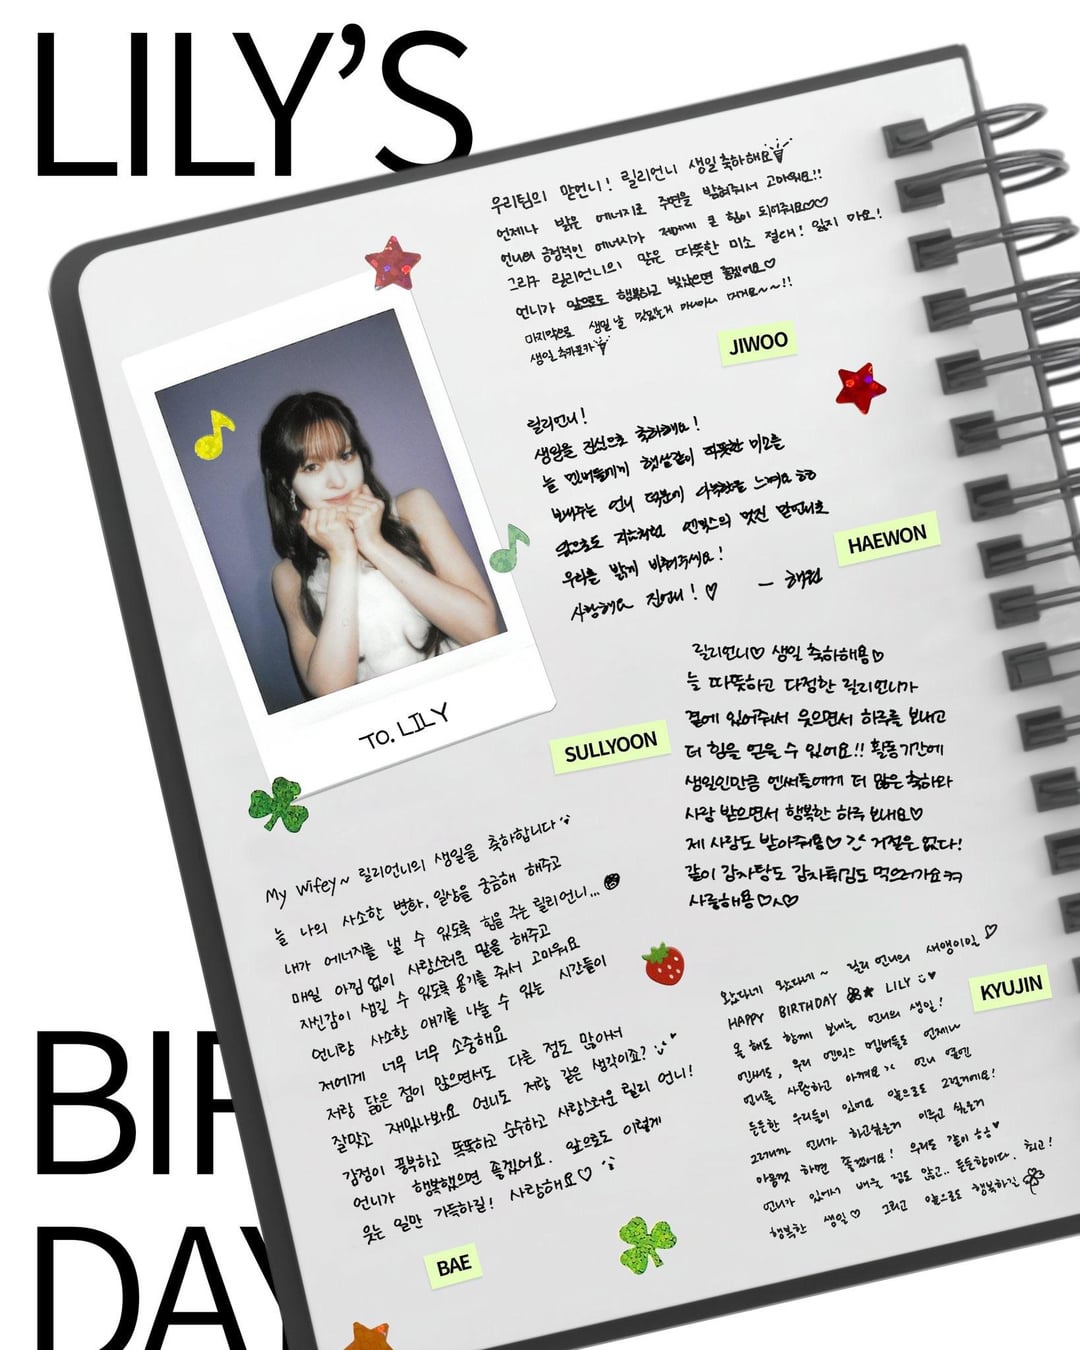 LILY'S
BIR
DAY
우리팀의 맏언니! 릴리언니 생일축하해요
언제나 밝은 에너지로 주변을 밝혀줘서 고마워요!!
언니의 긍정적인 에너지가 저에게 큰 힘이 되어줘요♡♡
그리구 릴리언니의 맑은 따뜻한 미소 절대! 잃지 마요!
언니가 앞으로도 행복하고 빛났으면 좋겠어요♡
마지막으로 생일날 맛있는거 마니마니 먹거요~~!!
생일 추카포카
JIWOO
릴리언니!
생일을 진심으로 축하해요!
늘 멤버들에게 햇살같이 따뜻한 미소를
보내주는 언니 덕분에 다정함을 느껴요 ㅎㅎ
앞으로도 지금처럼 엔믹스의 멋진 맏언니로
우리를 밝게 비춰주세요!
사랑해요 진언니!♡ - 해원
HAEWON
TO. LILY
릴리언니♡ 생일 축하해용♡
늘 따뜻하고 다정한 릴리언니가
곁에 있어줘서 웃으면서 하루를 보내고
더 힘을 얻을 수 있어요!! 활동기간에
생일인만큼 엔써들에게 더 많은 축하와
사랑 받으면서 행복한 하루 보내요♡
제 사랑도 받아줘용♡ 거절은 없다!
같이 감자탕도 감자튀김도 먹으러가요ㅋㅋ
사랑해용♡ㅅ♡
SULLYOON
My Wifey~ 릴리언니의 생일을 축하합니다
늘 나의 사소한 변화, 일상을 궁금해 해주고
내가 에너지를 낼 수 있도록 힘을 주는 릴리언니...
매일 아낌없이 사랑스러운 말을 해주고
자신감이 생길 수 있도록 용기를 줘서 고마워요
언니랑 사소한 얘기를 나눌 수 있는 시간들이
저에게 너무 너무 소중해요
저랑 닮은 점이 많으면서도 다른 점도 많아서
잘맞고 재밌나봐요 언니도 저랑 같은 생각이죠?
감정이 풍부하고 똑똑하고 순수하고 사랑스러운 릴리 언니!
언니가 행복했으면 좋겠어요. 앞으로도 이렇게
웃는 일만 가득하길! 사랑해요♡
BAE
왔다네 왔다네~ 릴리 언니의 새앵이일 ♡
HAPPY BIRTHDAY LILY
올 해도 함께 보내는 언니의 생일!
엔써도, 우리 엔믹스 멤버들도 언제나
언니를 사랑하고 아껴요 언니 옆엔
든든한 우리들이 있어요 앞으로도 그럴거에요!
그러니까 언니가 하고싶은거 이루고 싶은거
마음껏 하면 좋겠어요! 우리도 같이 ㅎㅎ♥
언니가 있어서 배울 점도 많고.. 든든합니다. 최고!
행복한 생일♡ 그리고 앞으로도 행복하길
KYUJIN